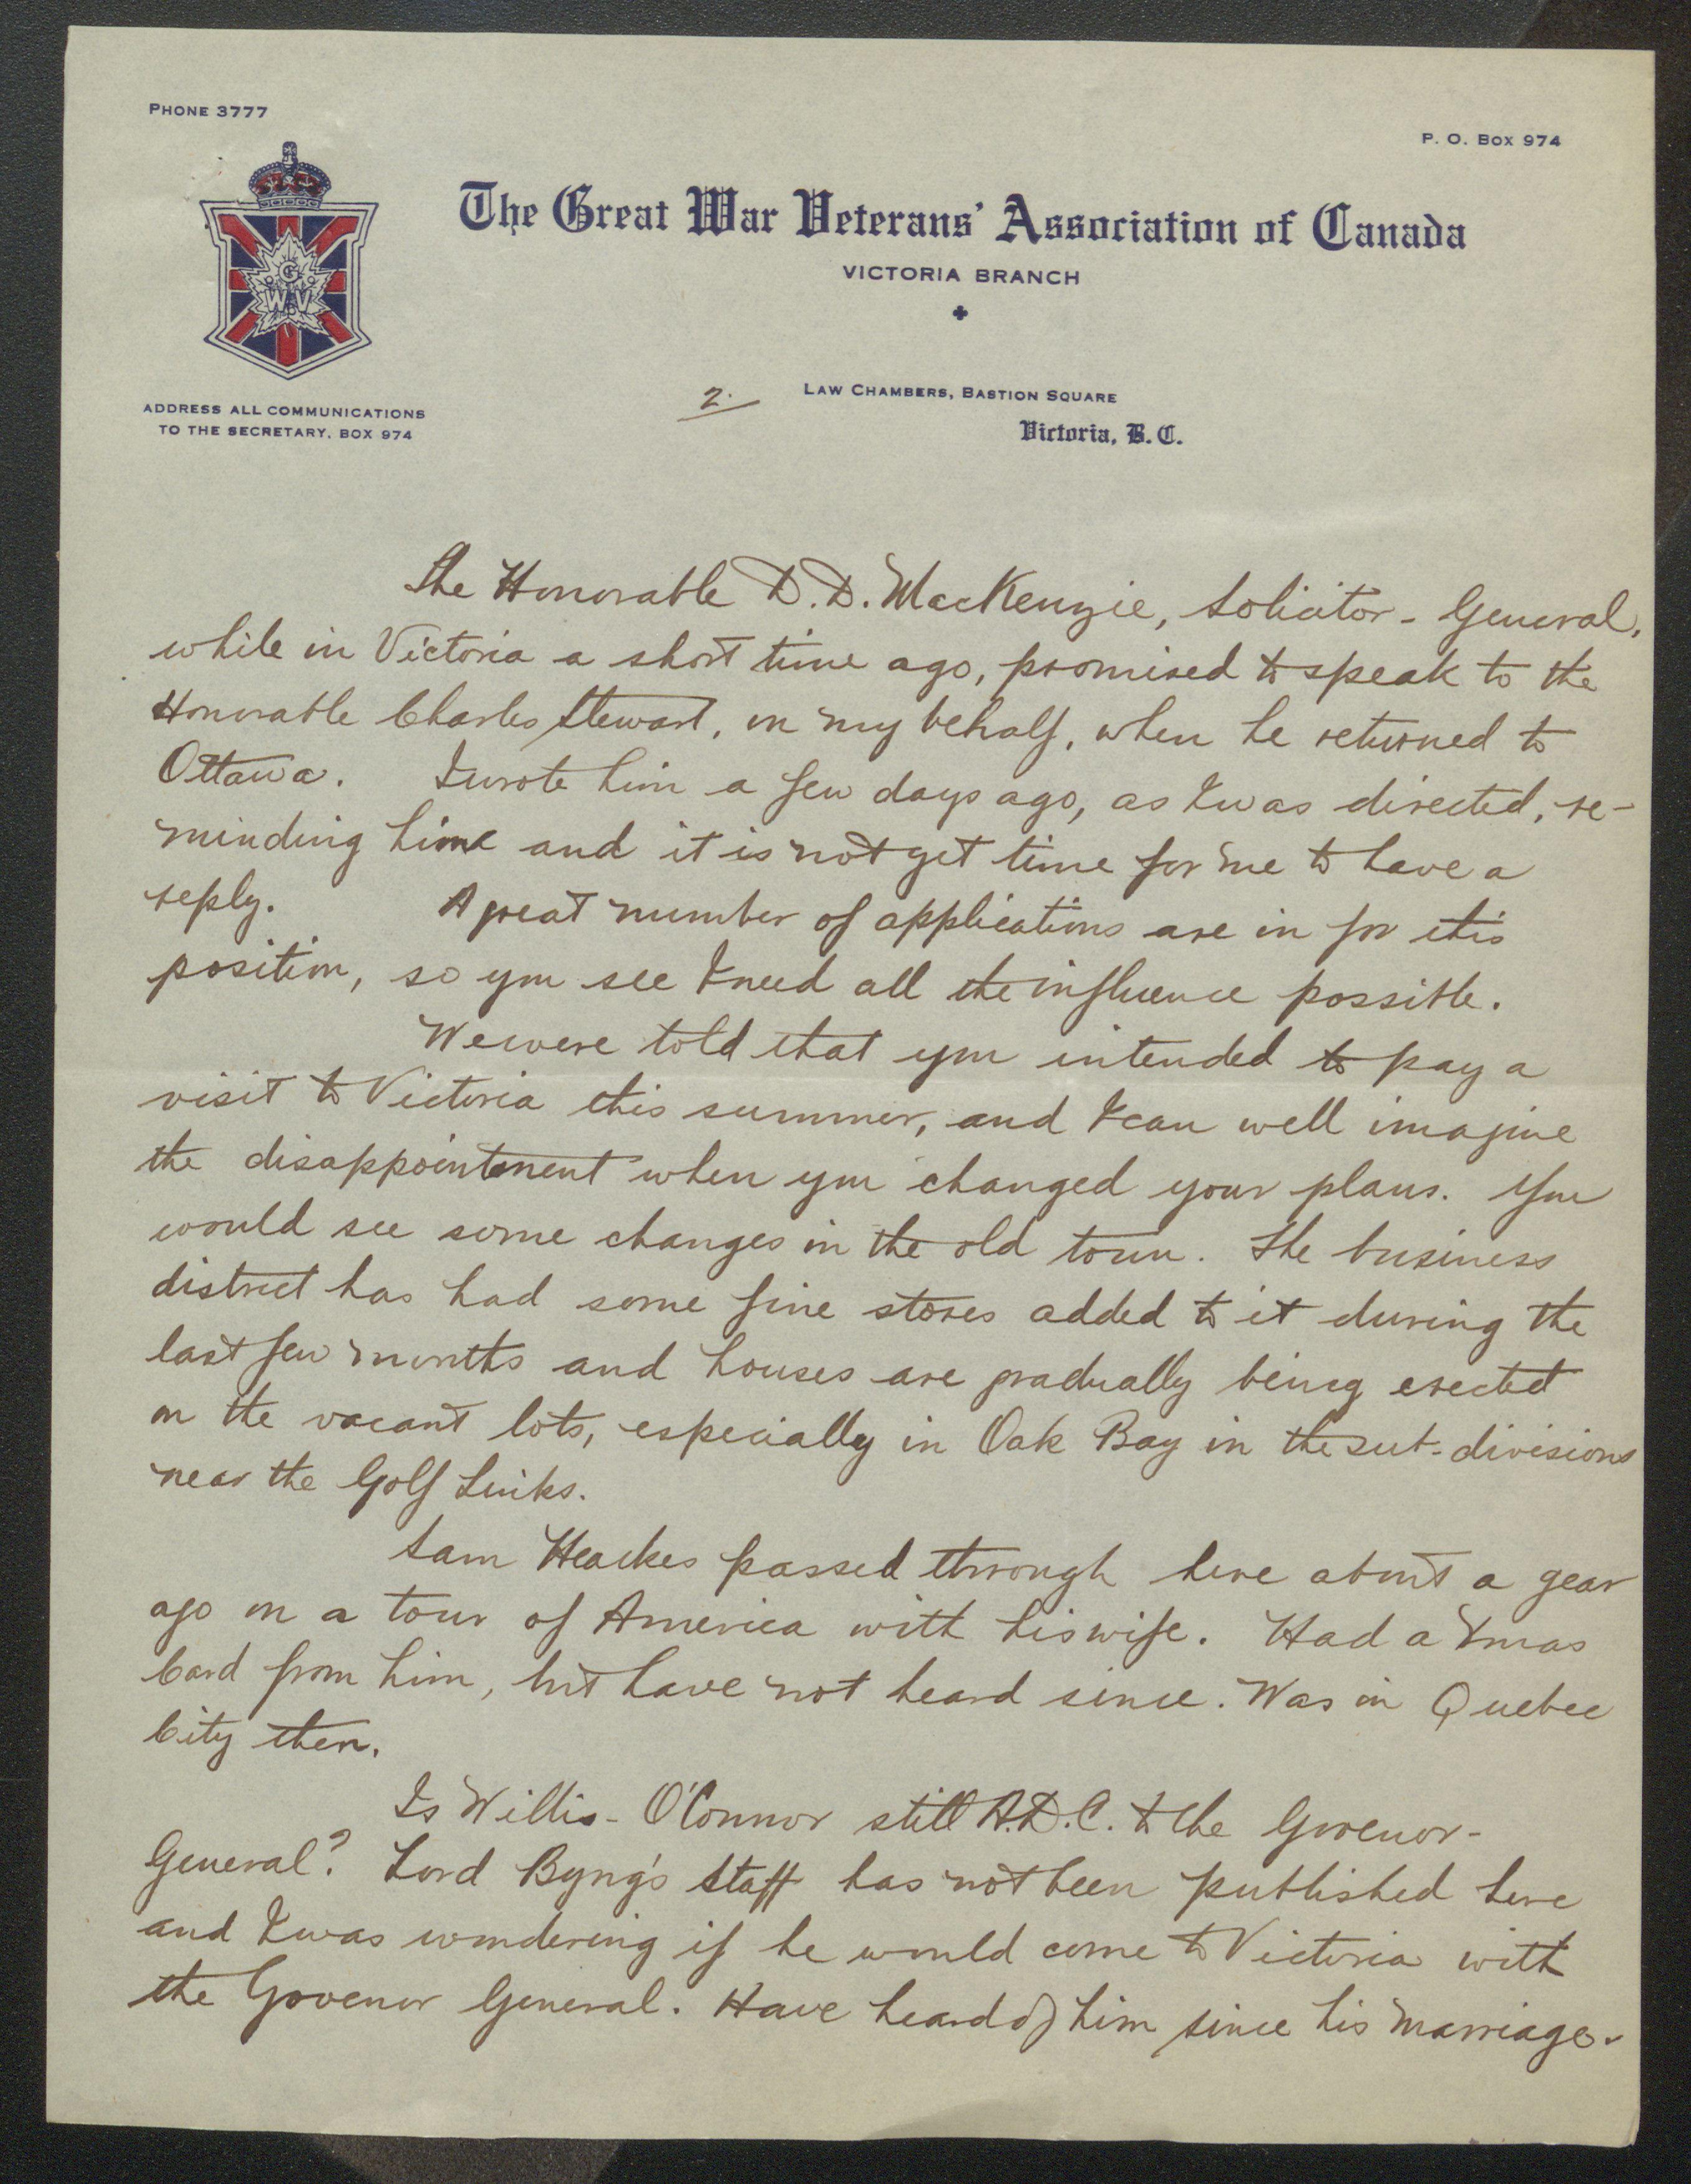 PHONE 3777
P. O. BOX 974
The Great War Veterans' Association of Canada
VICTORIA BRANCH
G
W V
2.
LAW CHAMBERS, BASTION SQUARE
Victoria, B. C.
ADDRESS ALL COMMUNICATIONS
TO THE SECRETARY, BOX 974
The Honorable D. D. MacKenzie, Solicitor-General,
while in Victoria a short time ago, promised to speak to the
Honorable Charles Stewart, on my behalf, when he returned to
Ottawa. I wrote him a few days ago, as I was directed, re-
minding him and it is not yet time for me to have a
reply. A great number of applications are in for this
position, so you see I need all the influence possible.
We were told that you intended to pay a
visit to Victoria this summer, and I can well imagine
the disappointment when you changed your plans. You
would see some changes in the old town. The business
district has had some fine stores added to it during the
last few months and houses are gradually being erected
on the vacant lots, especially in Oak Bay in the sub-divisions
near the Golf Links.
Sam Heakes passed through here about a year
ago on a tour of America with his wife. Had a Xmas
Card from him, but have not heard since. Was in Quebec
City then.
Is Willis-O'Connor still A.D.C. to the Govenor-
General? Lord Byng's Staff has not been published here
and I was wondering if he would come to Victoria with
the Govenor General. Have heard of him since his marriage.